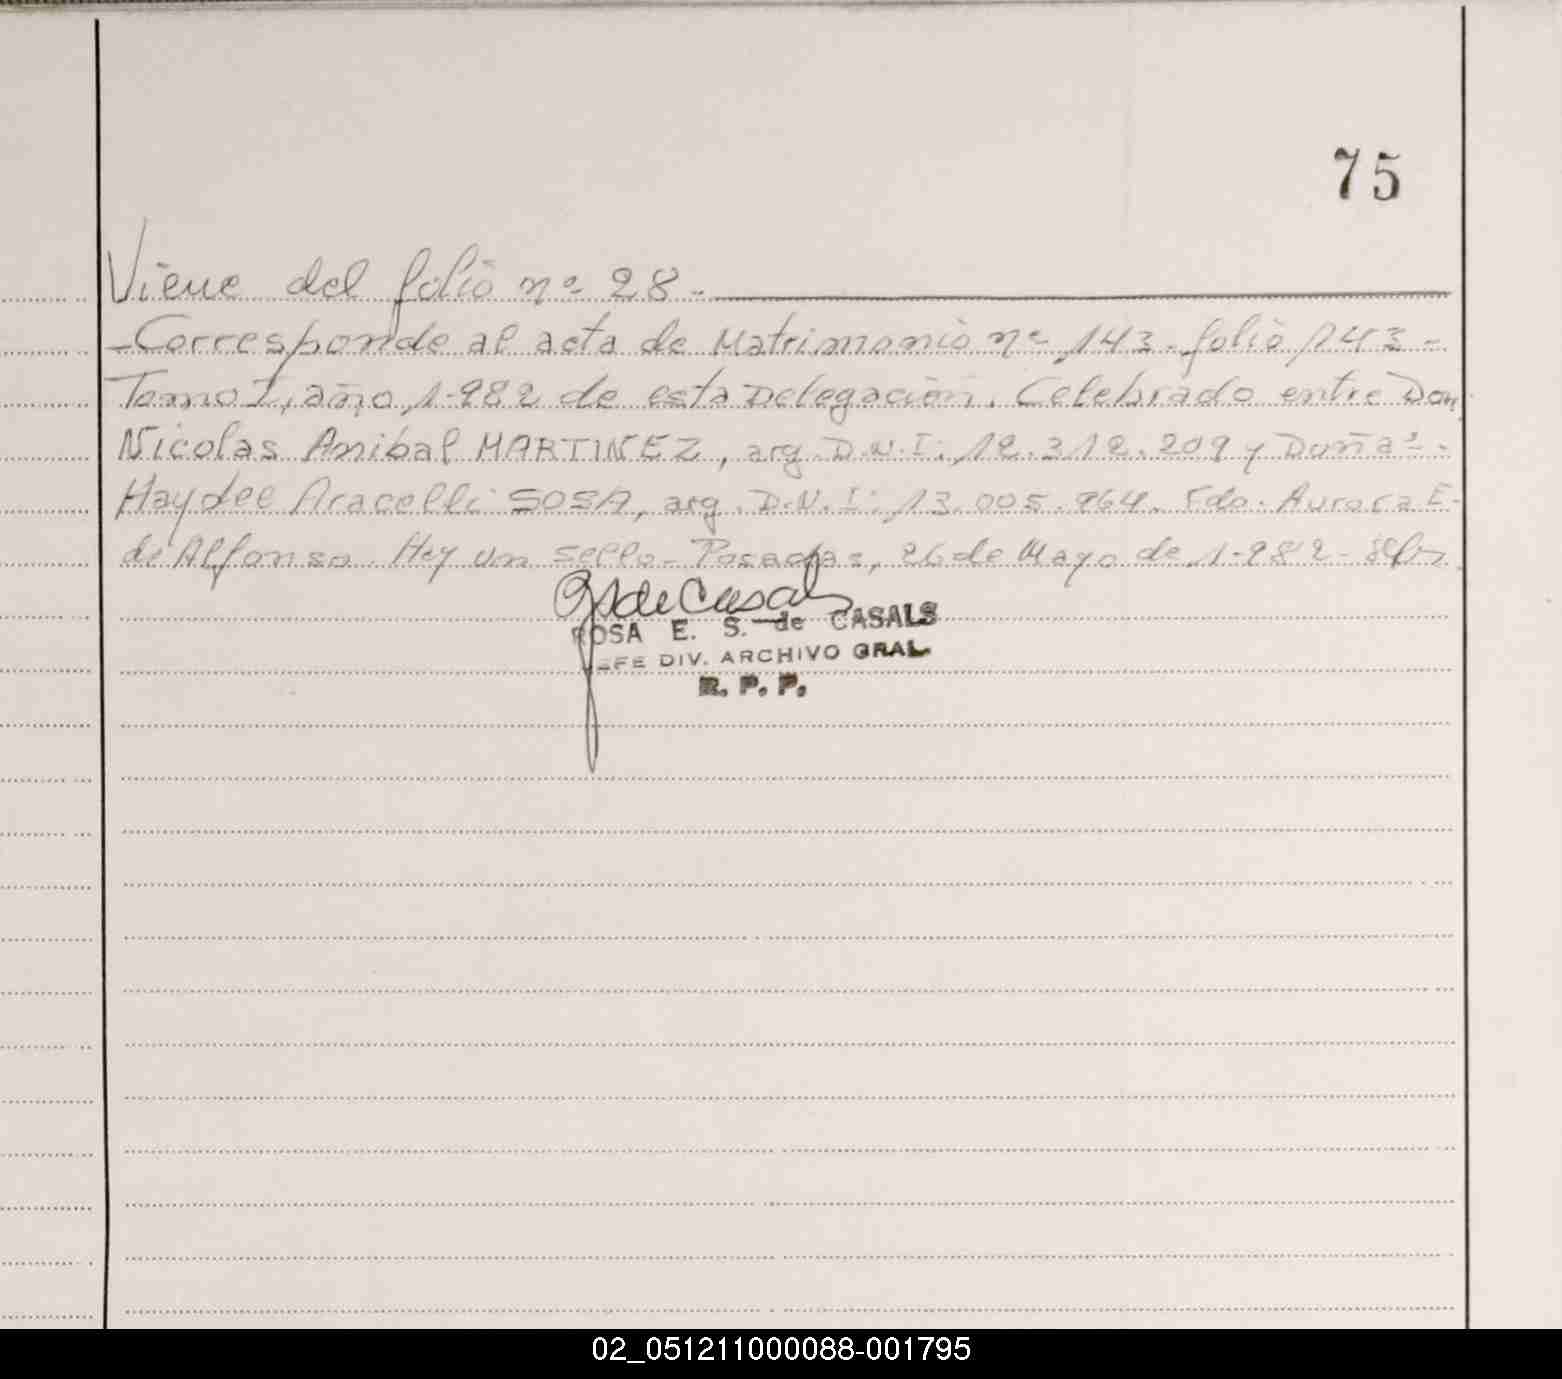 75
Viene del folio nº 28.-
-Corresponde al acta de Matrimonio nº 143. folio 143-
Tomo I, año 1.982 de esta Delegación. Celebrado entre Don
Nicolas Anibal MARTINEZ, arg. D.N.I: 12.312.209 y Doña:-
Haydee Aracelli SOSA, arg. D.N.I: 13.005.964. Fdo. Aurora E.
de Alfonso. Hay un sello- Posadas, 26 de Mayo de 1.982-
ROSA E. S. de CASALS
JEFE DIV. ARCHIVO GRAL
R. P. P.
02_051211000088-001795